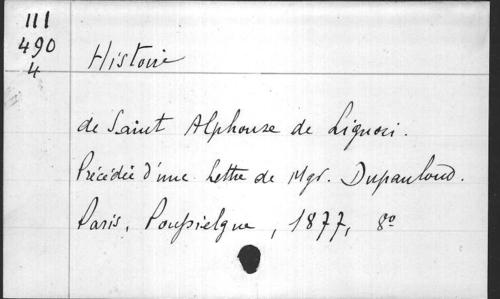 III
490
4
Histoire
de Saint Alphonse de Liguori.
Précédée d'une Lettre de Mgr. Dupanloup.
Paris, Poussielgue, 1877, 8º